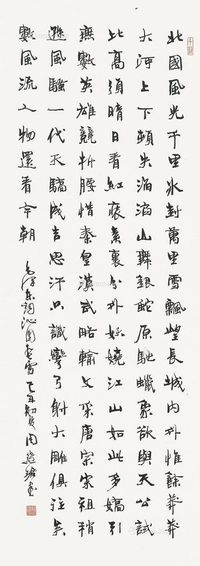 北國風光千里冰封萬里雪飄望長城內外惟餘莽莽
大河上下頓失滔滔山舞銀蛇原馳蠟象欲與天公試
比高須晴日看紅裝素裹分外妖嬈江山如此多嬌引
無數英雄競折腰惜秦皇漢武略輸文采唐宗宋祖稍
遜風騷一代天驕成吉思汗只識彎弓射大雕俱往矣
數風流人物還看今朝
毛澤東詞沁園春雪 初夏周